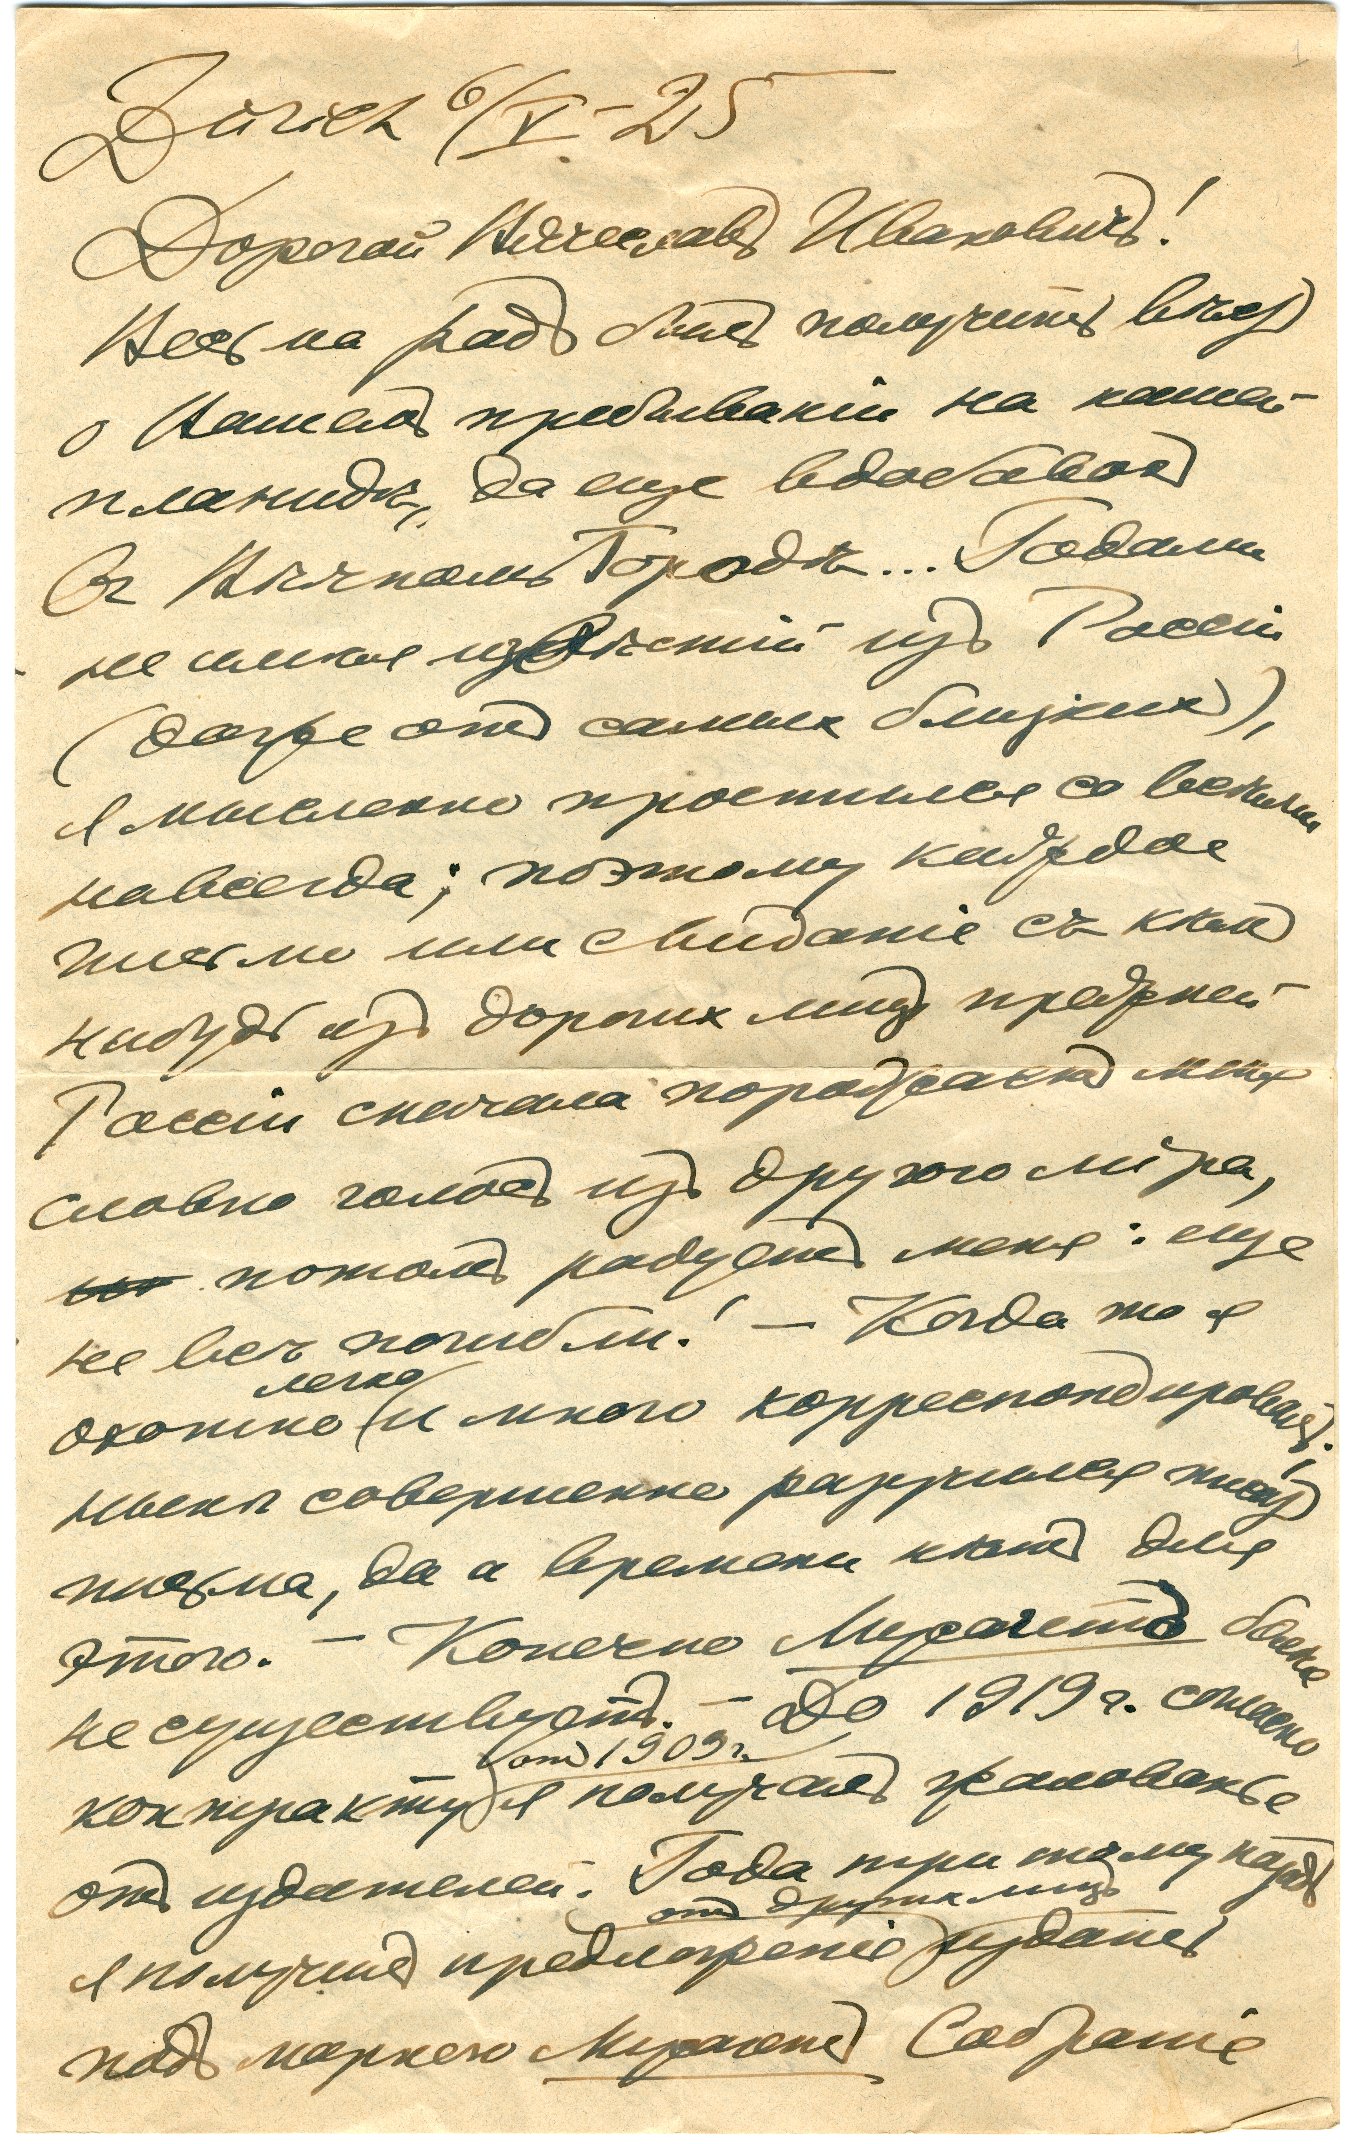 Zürich 6/V – 25
Дорогой Вячеславъ Ивановичъ!
Весьма радъ былъ получить вѣсть
о Вашемъ пребываніи на нашей
планидѣ, да еще вдобавокъ
въ Вѣчномъ Городѣ... Годами
не имѣя извѣстій изъ Россіи
(даже отъ самых близких),
я мысленно простился со всѣми
навсегда; поэтому каждое
письмо или свиданіе съ кѣмъ
нибудь изъ дорогих лицъ прежней
Россіи сначала поражаетъ меня
словно голосъ изъ другого міра,
потомъ радуетъ меня: еще
не всѣ погибли! – Когда то я
охотно (легко и много корреспондировалъ.
нынѣ совершенно разучился писать
письма, да и времени нѣтъ для
этого. – Конечно Мусагетъ болѣе
не существуетъ. – До 1919 г. согласно
контракту (отъ 1909 г.) я получалъ жалованье
отъ издателей. Года три тому назадъ
я получилъ предложеніе (отъ других лицъ) издать
подъ маркою Мусагетъ Собраніе